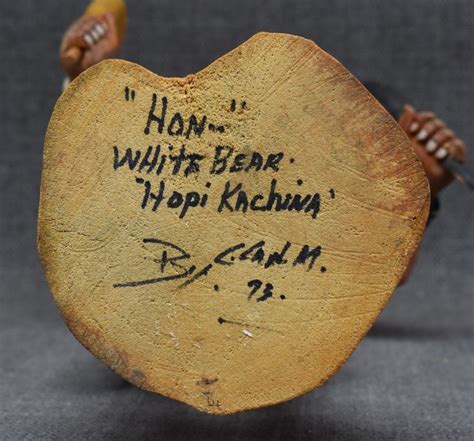 "HON.."
WHITE BEAR.
"HOPI KACHINA'
By.
73.